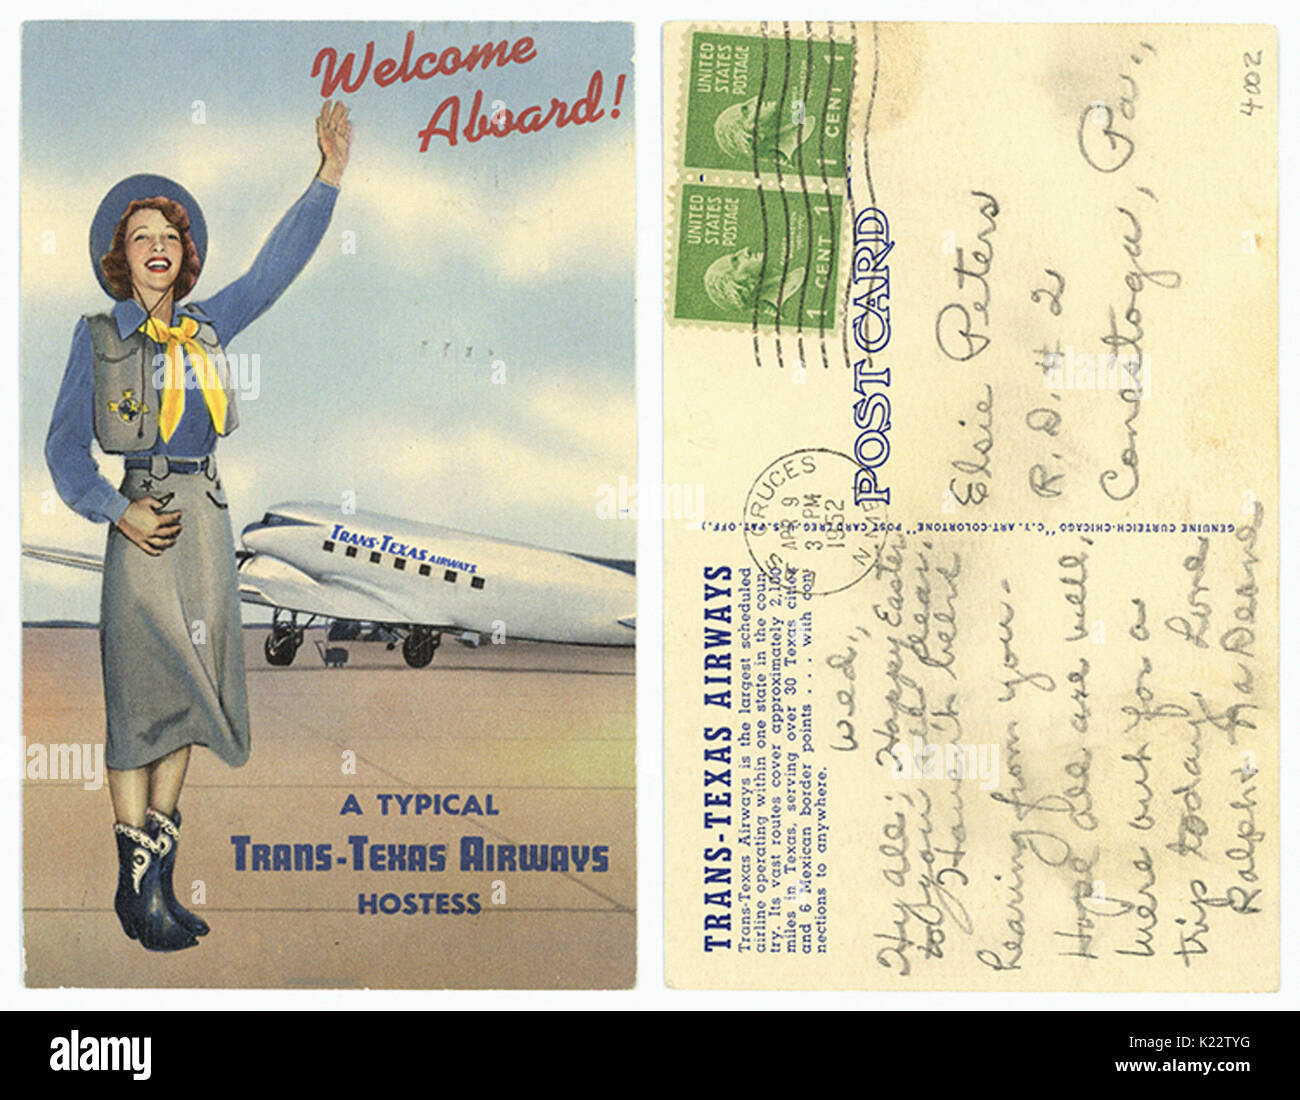 Welcome
Aboard!
TRANS-TEXAS AIRWAYS
A TYPICAL
TRANS-TEXAS AIRWAYS
HOSTESS
UNITED
STATES
POSTAGE
1 CENT 1
UNITED
STATES
POSTAGE
1 CENT 1
4002
POST CARD
CRUCES
APR 9
3 PM
1952
N.MEX
Elsie Peters
R.D. #2
Conestoga, Pa.,
GENUINE CURTEICH-CHICAGO "C.T. ART-COLORTONE" POST CARD (REG. U.S. PAT. OFF.)
TRANS-TEXAS AIRWAYS
Trans-Texas Airways is the largest scheduled
airline operating within one state in the coun-
try. Its vast routes cover approximately 2,100
miles in Texas, serving over 30 Texas cities
and 6 Mexican border points . . . with con-
nections to anywhere.
Wed.,
Hy all: Happy Easter
to you all dear,
Haven't been
hearing from you-
Hope all are well,
were out for a
trip today, Love
Ralph &
alamy
Image ID: K22TYG
www.alamy.com